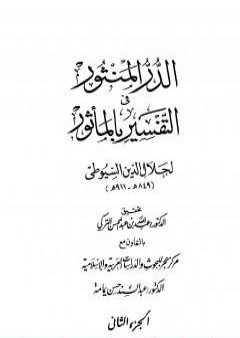 الدر المنثور
في
التفسير بالمأثور
لجلال الدين السيوطي
(٨٤٩ هـ - ٩١١ هـ)
تحقيق
الدكتور عبد الله بن عبد المحسن التركي
بالتعاون مع
مركز هجر للبحوث والدراسات العربية والإسلامية
الدكتور عبد السند حسن يمامة
الجزء الثاني